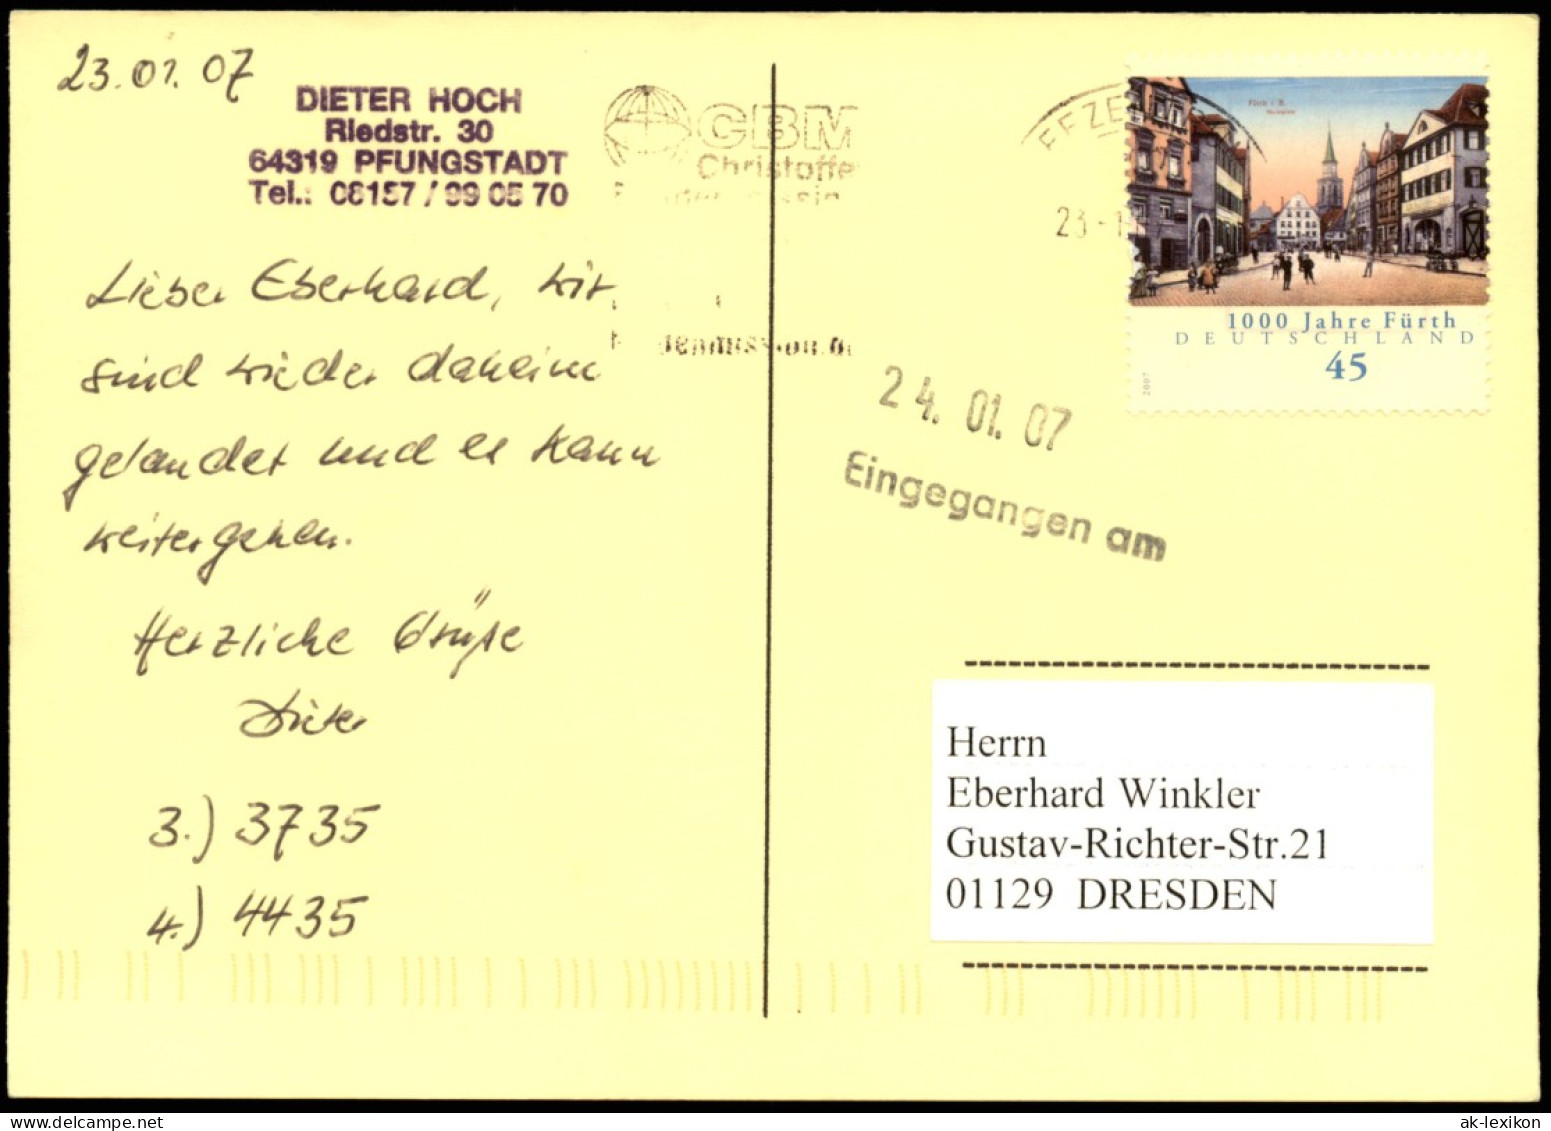 23.01.07
DIETER HOCH
Riedstr. 30
64319 PFUNGSTADT
Tel.: 06157 / 99 05 70
CBM
Christoffe
23
1000 Jahre Fürth
DEUTSCHLAND
45
2007
24.01.07
Eingegangen am
Lieber Eberhard, wir
sind wieder daheim
gelandet und es kann
weitergehen.
Herzliche Grüße
Dieter
3.) 3735
4.) 4435
Herrn
Eberhard Winkler
Gustav-Richter-Str.21
01129 DRESDEN
ak-lexikon